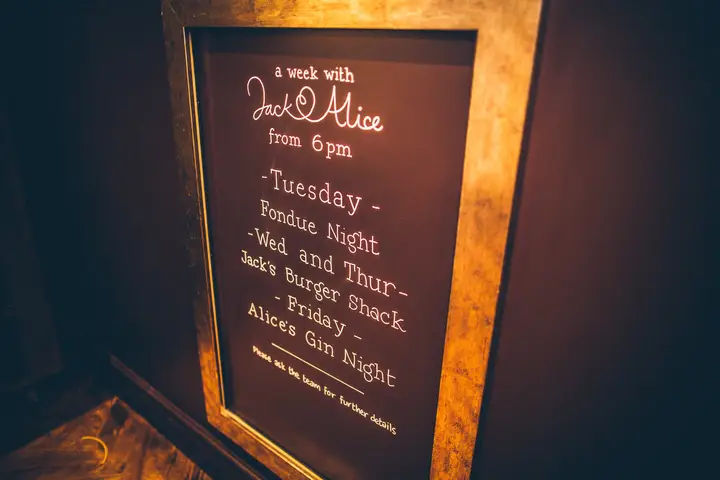 a week with
Jack & Alice
from 6pm
- Tuesday -
Fondue Night
- Wed and Thur -
Jack's Burger Shack
- Friday -
Alice's Gin Night
Please ask the team for further details